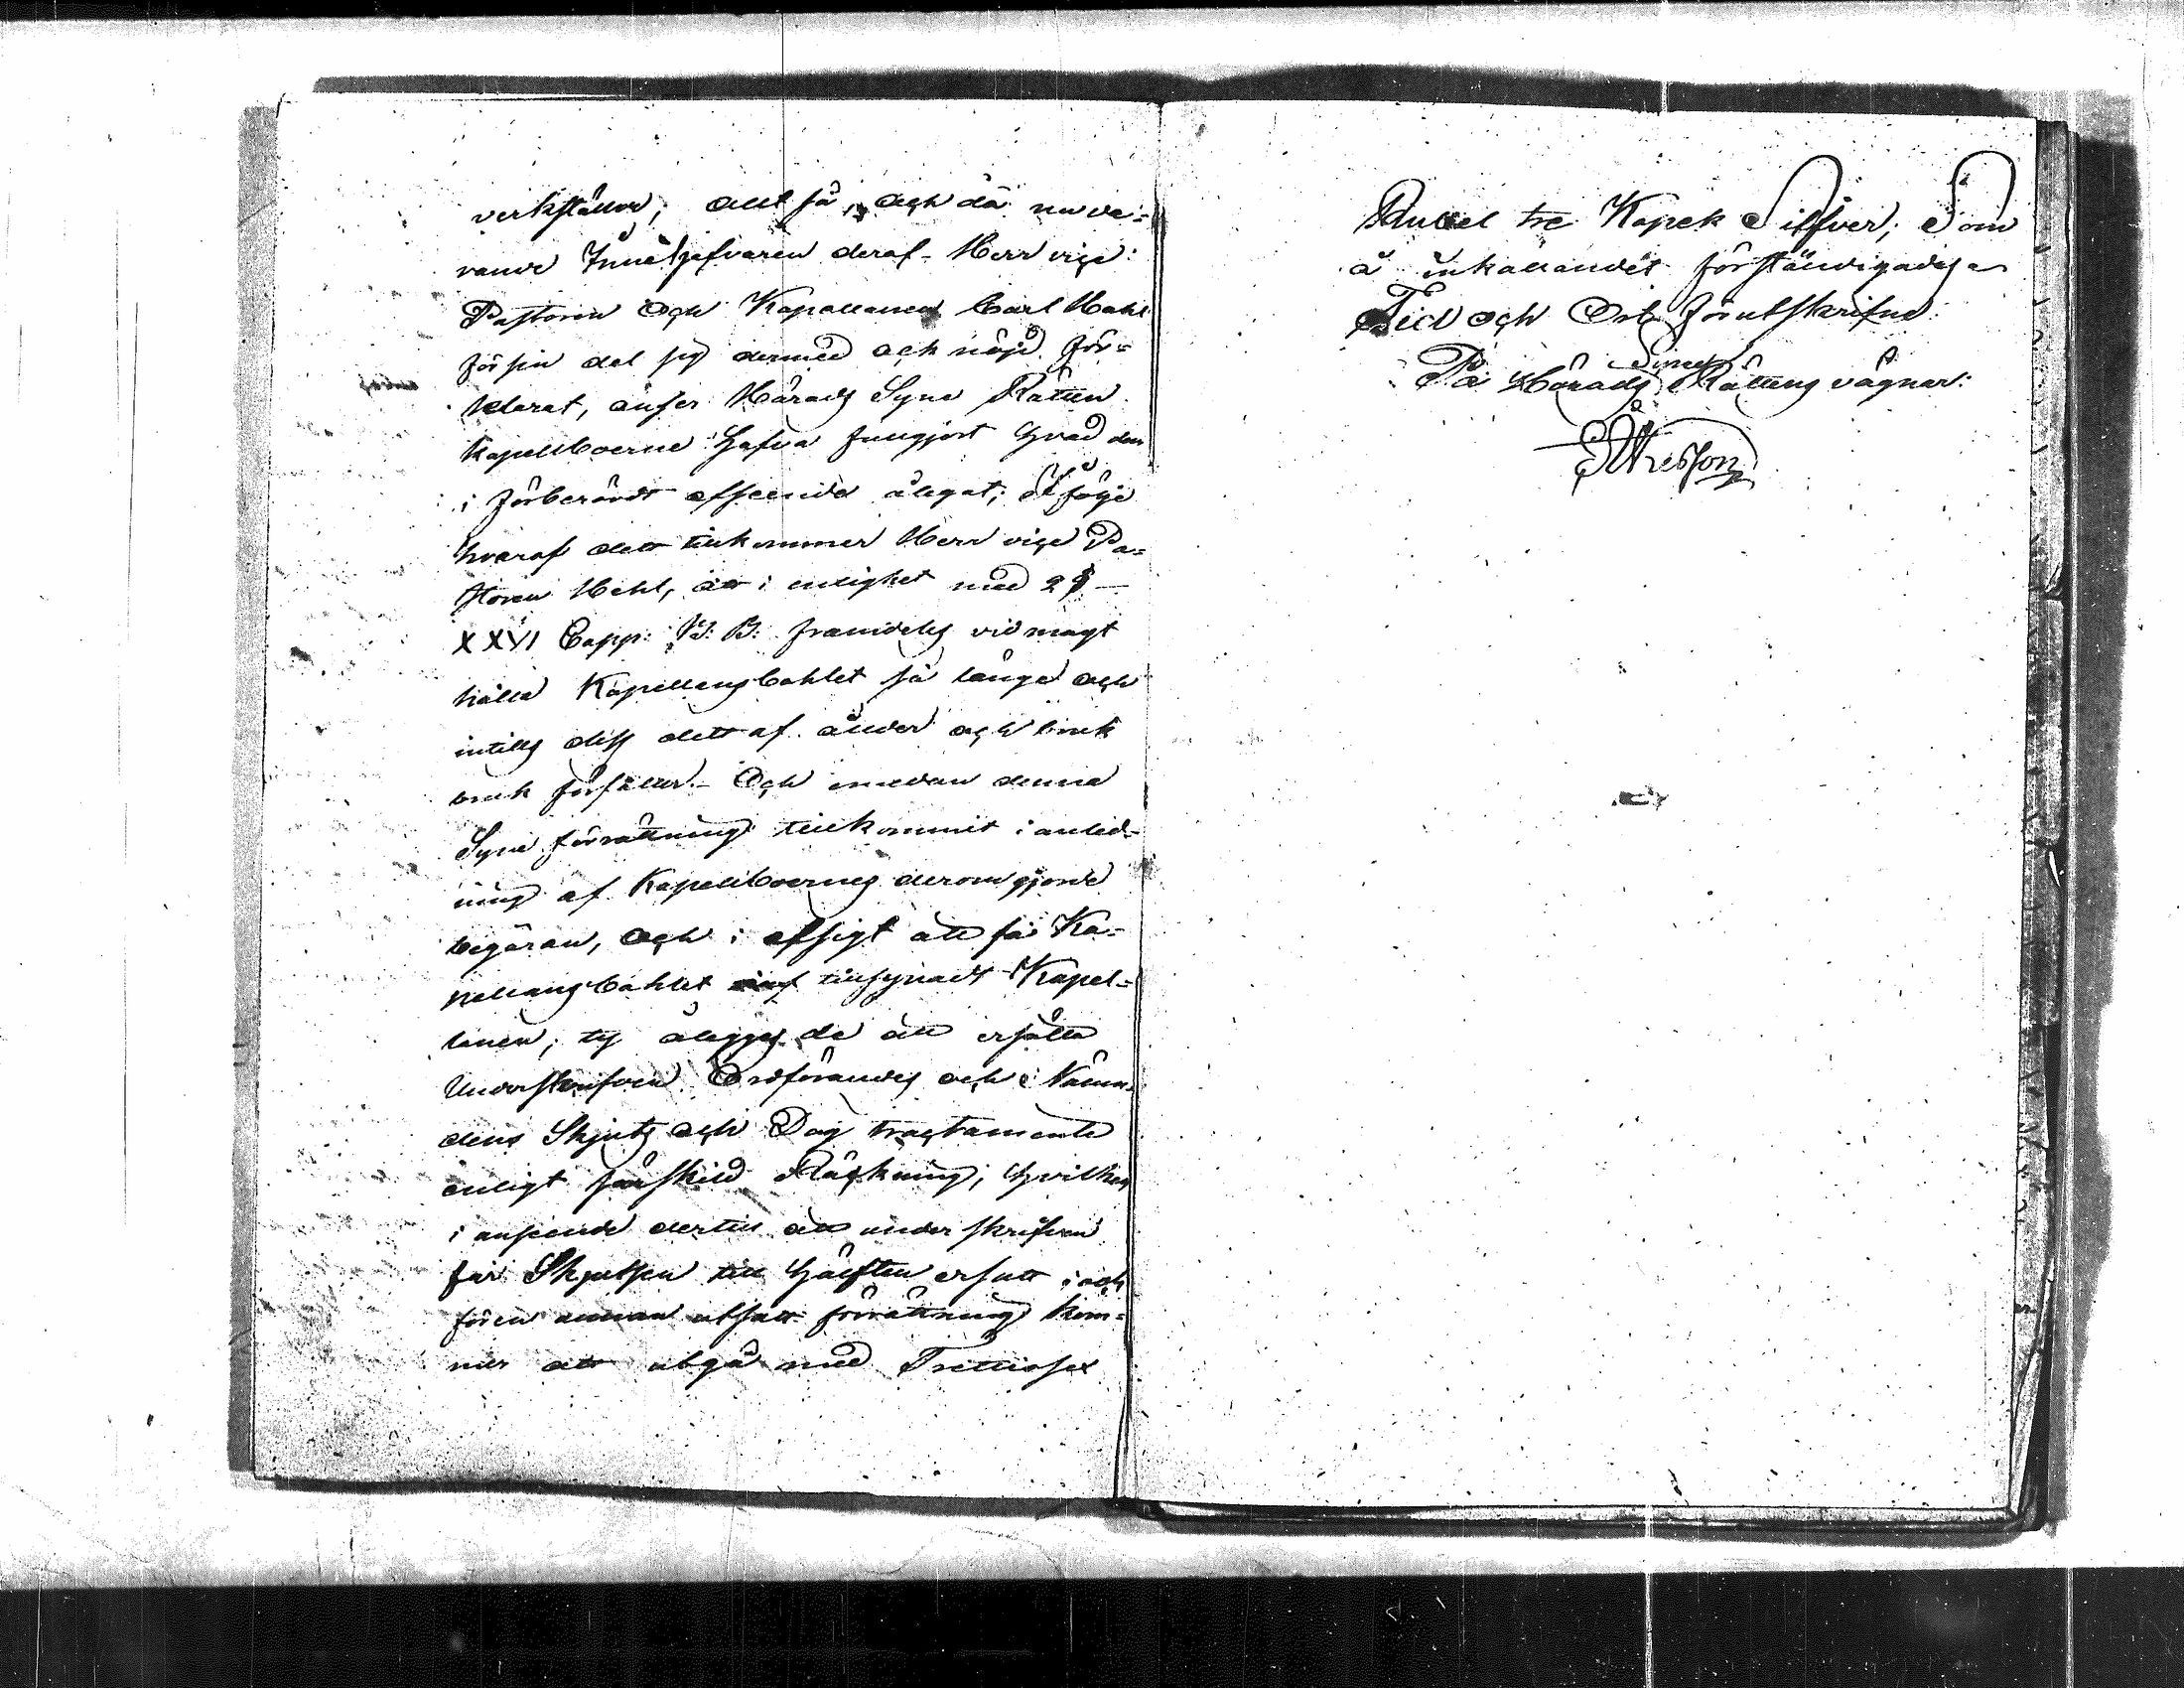 verkstäldt; Allt så, och då nuva-
rande Innehafvaren deraf Herr vice
Pastoren och Kapellanen Carl Hahl
för sin del sig dermed och nöjd för-
klarat, anser Härads Syne Rätten
Kapellboerne hafva fullgjort hvad dem
i förberördt afseende ålegat; Til följe
hvaraf det tillkommer Herr vice Pa-
storen Hahl, att i enlighet med 2 §
XXVI Capp: B. B. framdeles vid magt
hålla Kapellansbohlet så länge och
intills dess dett af ålder och bruk
bruk förfaller. Och emedan denna
Syne förrättning tillkommit i anled-
ning af Kapellboernes derom gjorde
begäran, och i afsigt att få Ka-
pellansbohlet tillsynadt Kapel-
lanen; ty åläggas de att ersätta
Underskrifven Ordförandes och Nämn-
dens Skjuts och Dag tractamente
enligt särskild Räkning; hvilken
i anseende dertill att underskrifven
får Skjutsen till hälften ersatt
för en annan utsatt förrättning kom-
mer att utgå med Trettiosex
Rubel tre Kopek Silfver; Som
å inkallandet förständigades
Tid och Ort förutskrifne.
På Härads Syne Rättens vägnar: